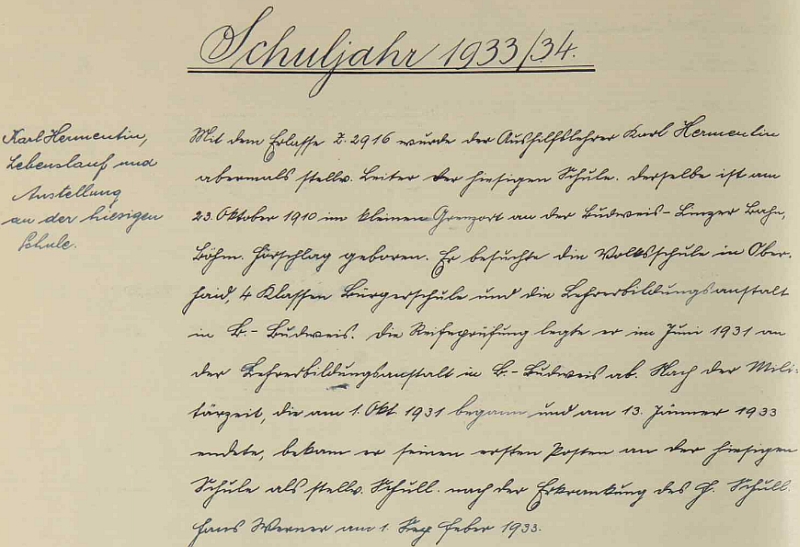 Schuljahr 1933/34.
Karl Hermentin,
Lebenslauf und
Anstellung
an der hiesigen
Schule.
Mit dem Erlasse Z. 2916 wurde der Aushilfslehrer Karl Hermentin
abermals stellv. Leiter der hiesigen Schule. Derselbe ist am
23. Oktober 1910 im kleinen Grenzort an der Budweis-Linzer Bahn,
Böhm. Hörschlag geboren. Er besuchte die Volksschule in Ober-
haid, 4 Klassen Bürgerschule und die Lehrerbildungsanstalt
in B.-Budweis. Die Reifeprüfung legte er im Juni 1931 an
der Lehrerbildungsanstalt in B.-Budweis ab. Nach der Mili-
tärzeit, die am 1. Okt 1931 begann und am 13. Jänner 1933
endete, bekam er seinen ersten Posten an der hiesigen
Schule als stellv. Schull. nach der Erkrankung des H. Schull.
Hans Werner am 1. Feber 1933.